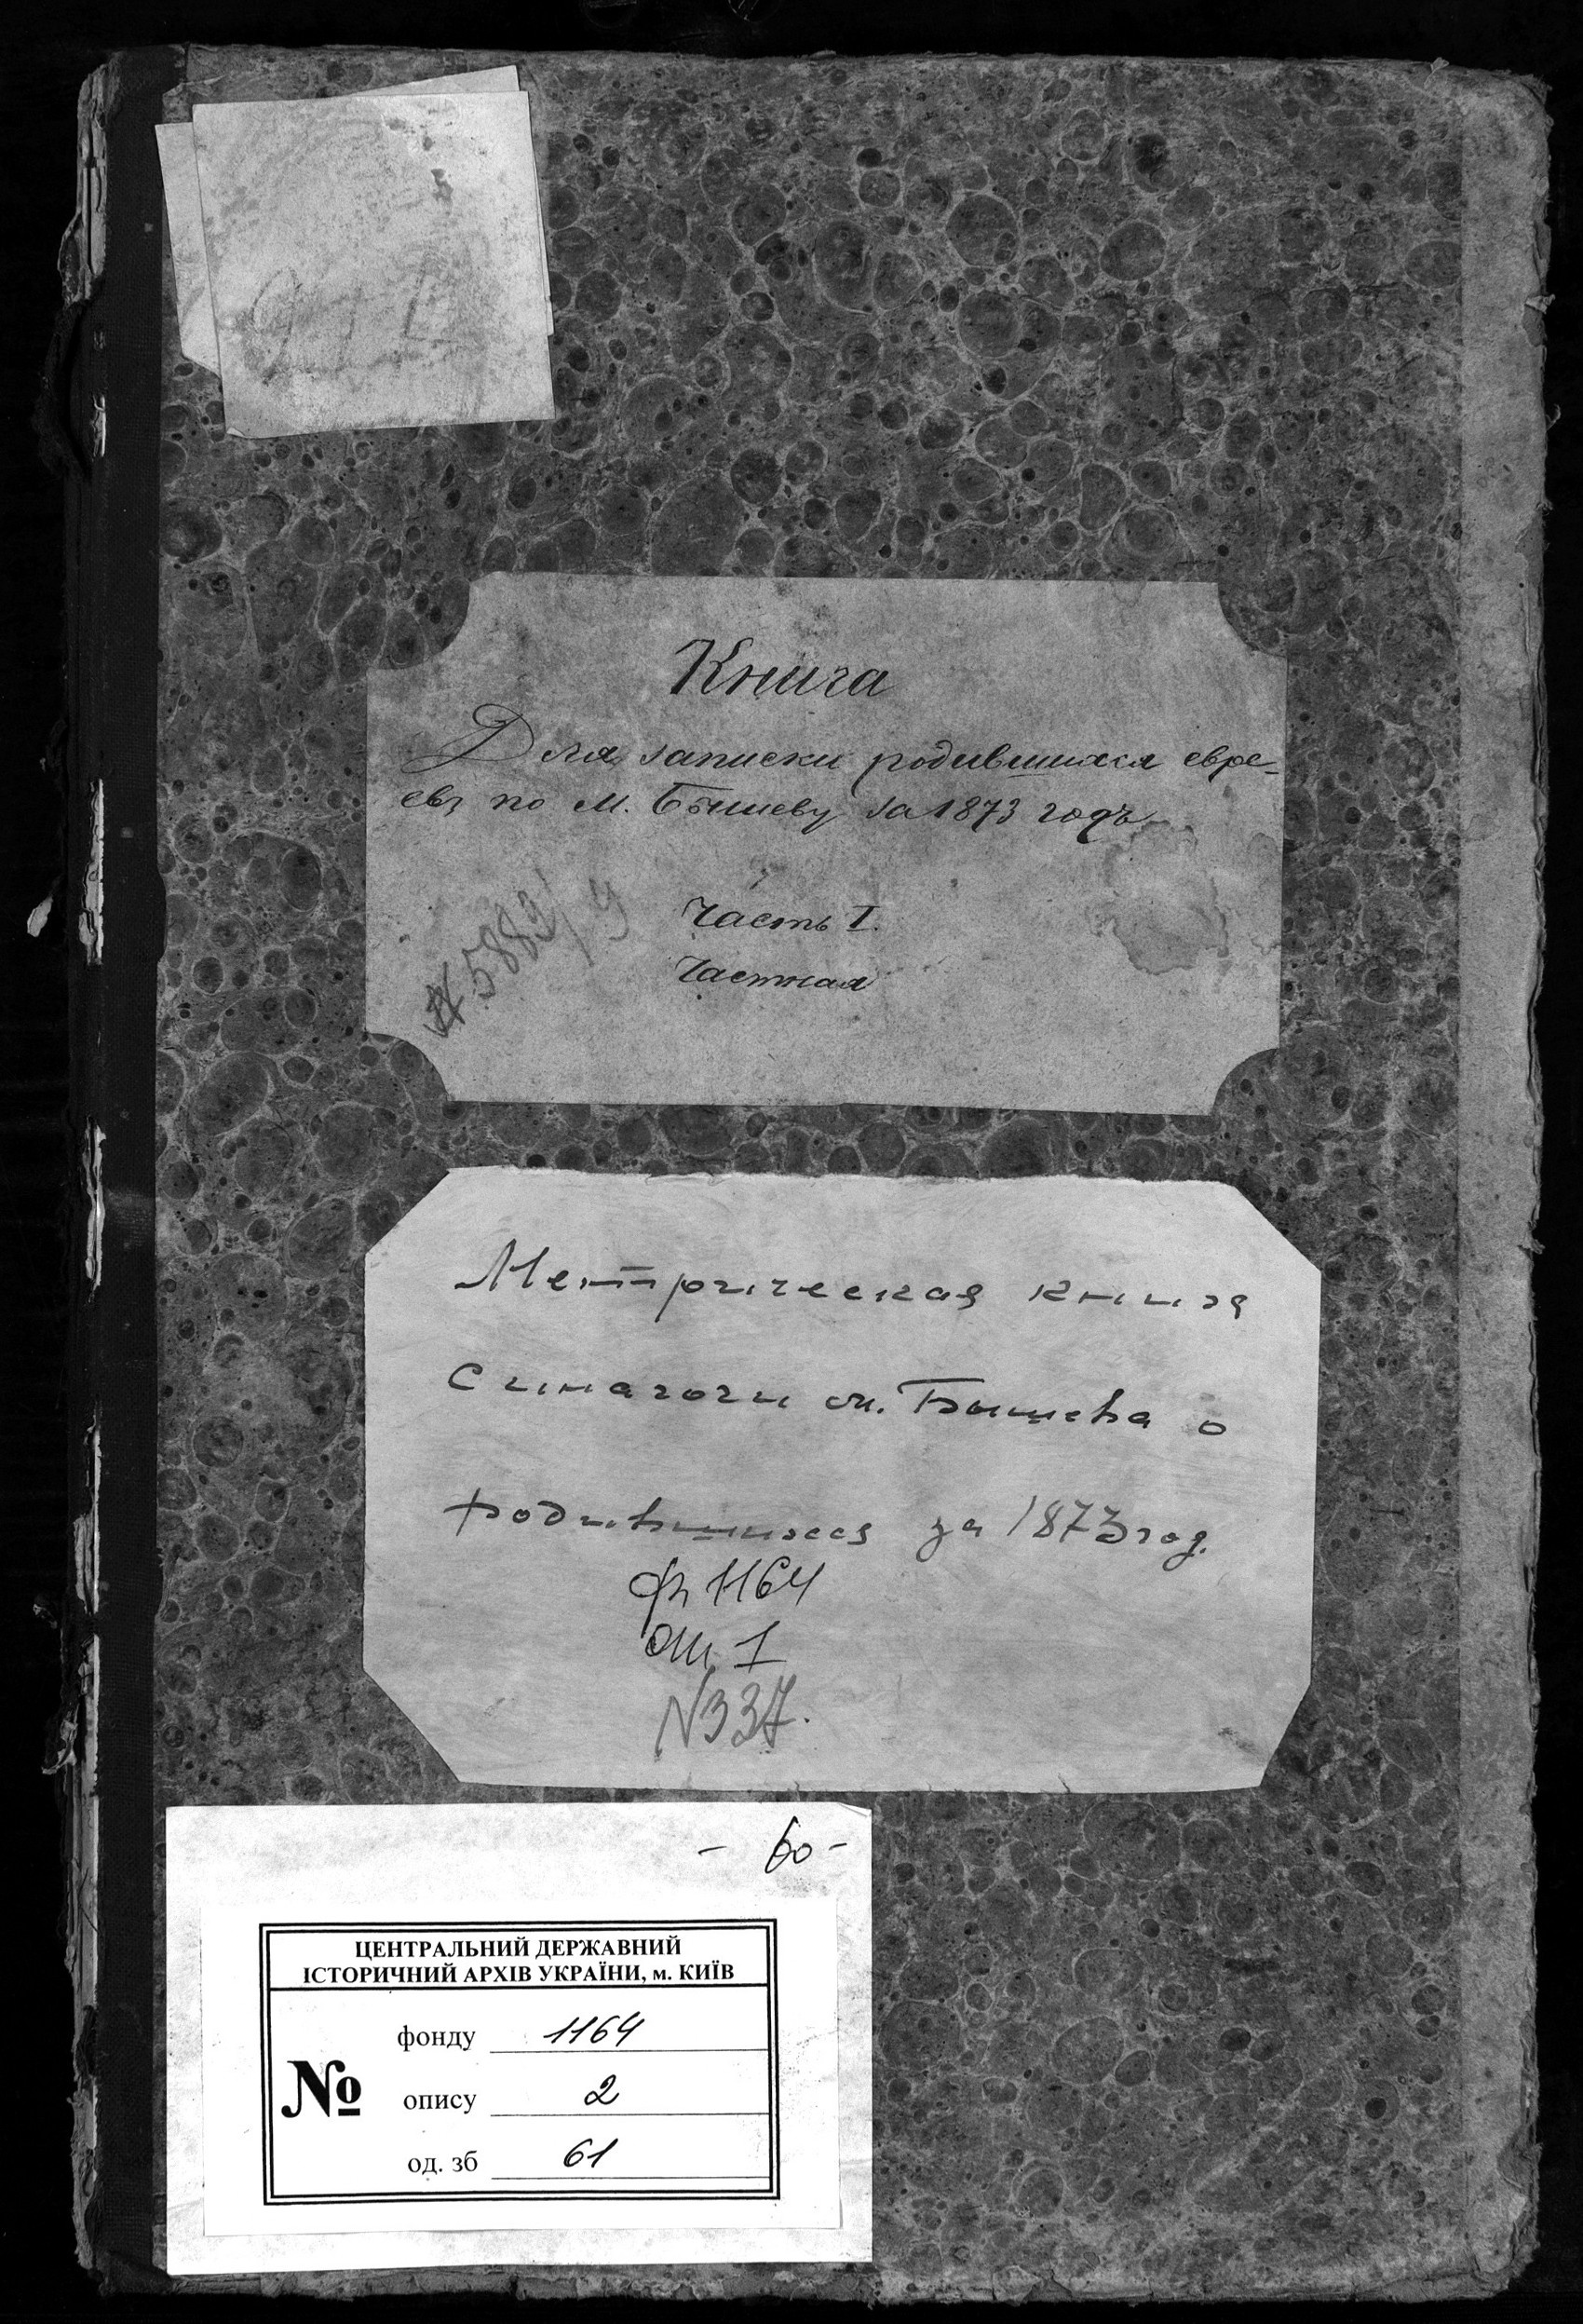 Книга
Для записки родившихся евре-
евъ по м. Бышеву за 1873 годъ
Часть I.
Частная
№ 5883/9
Метрическая книга
синагоги м. Бышева о
родившихся за 1873 год.
ф 1164
оп. 1
№337.
- 60 -
ЦЕНТРАЛЬНИЙ ДЕРЖАВНИЙ
ІСТОРИЧНИЙ АРХІВ УКРАЇНИ, м. КИЇВ
№
фонду 1164
опису 2
од. зб 61